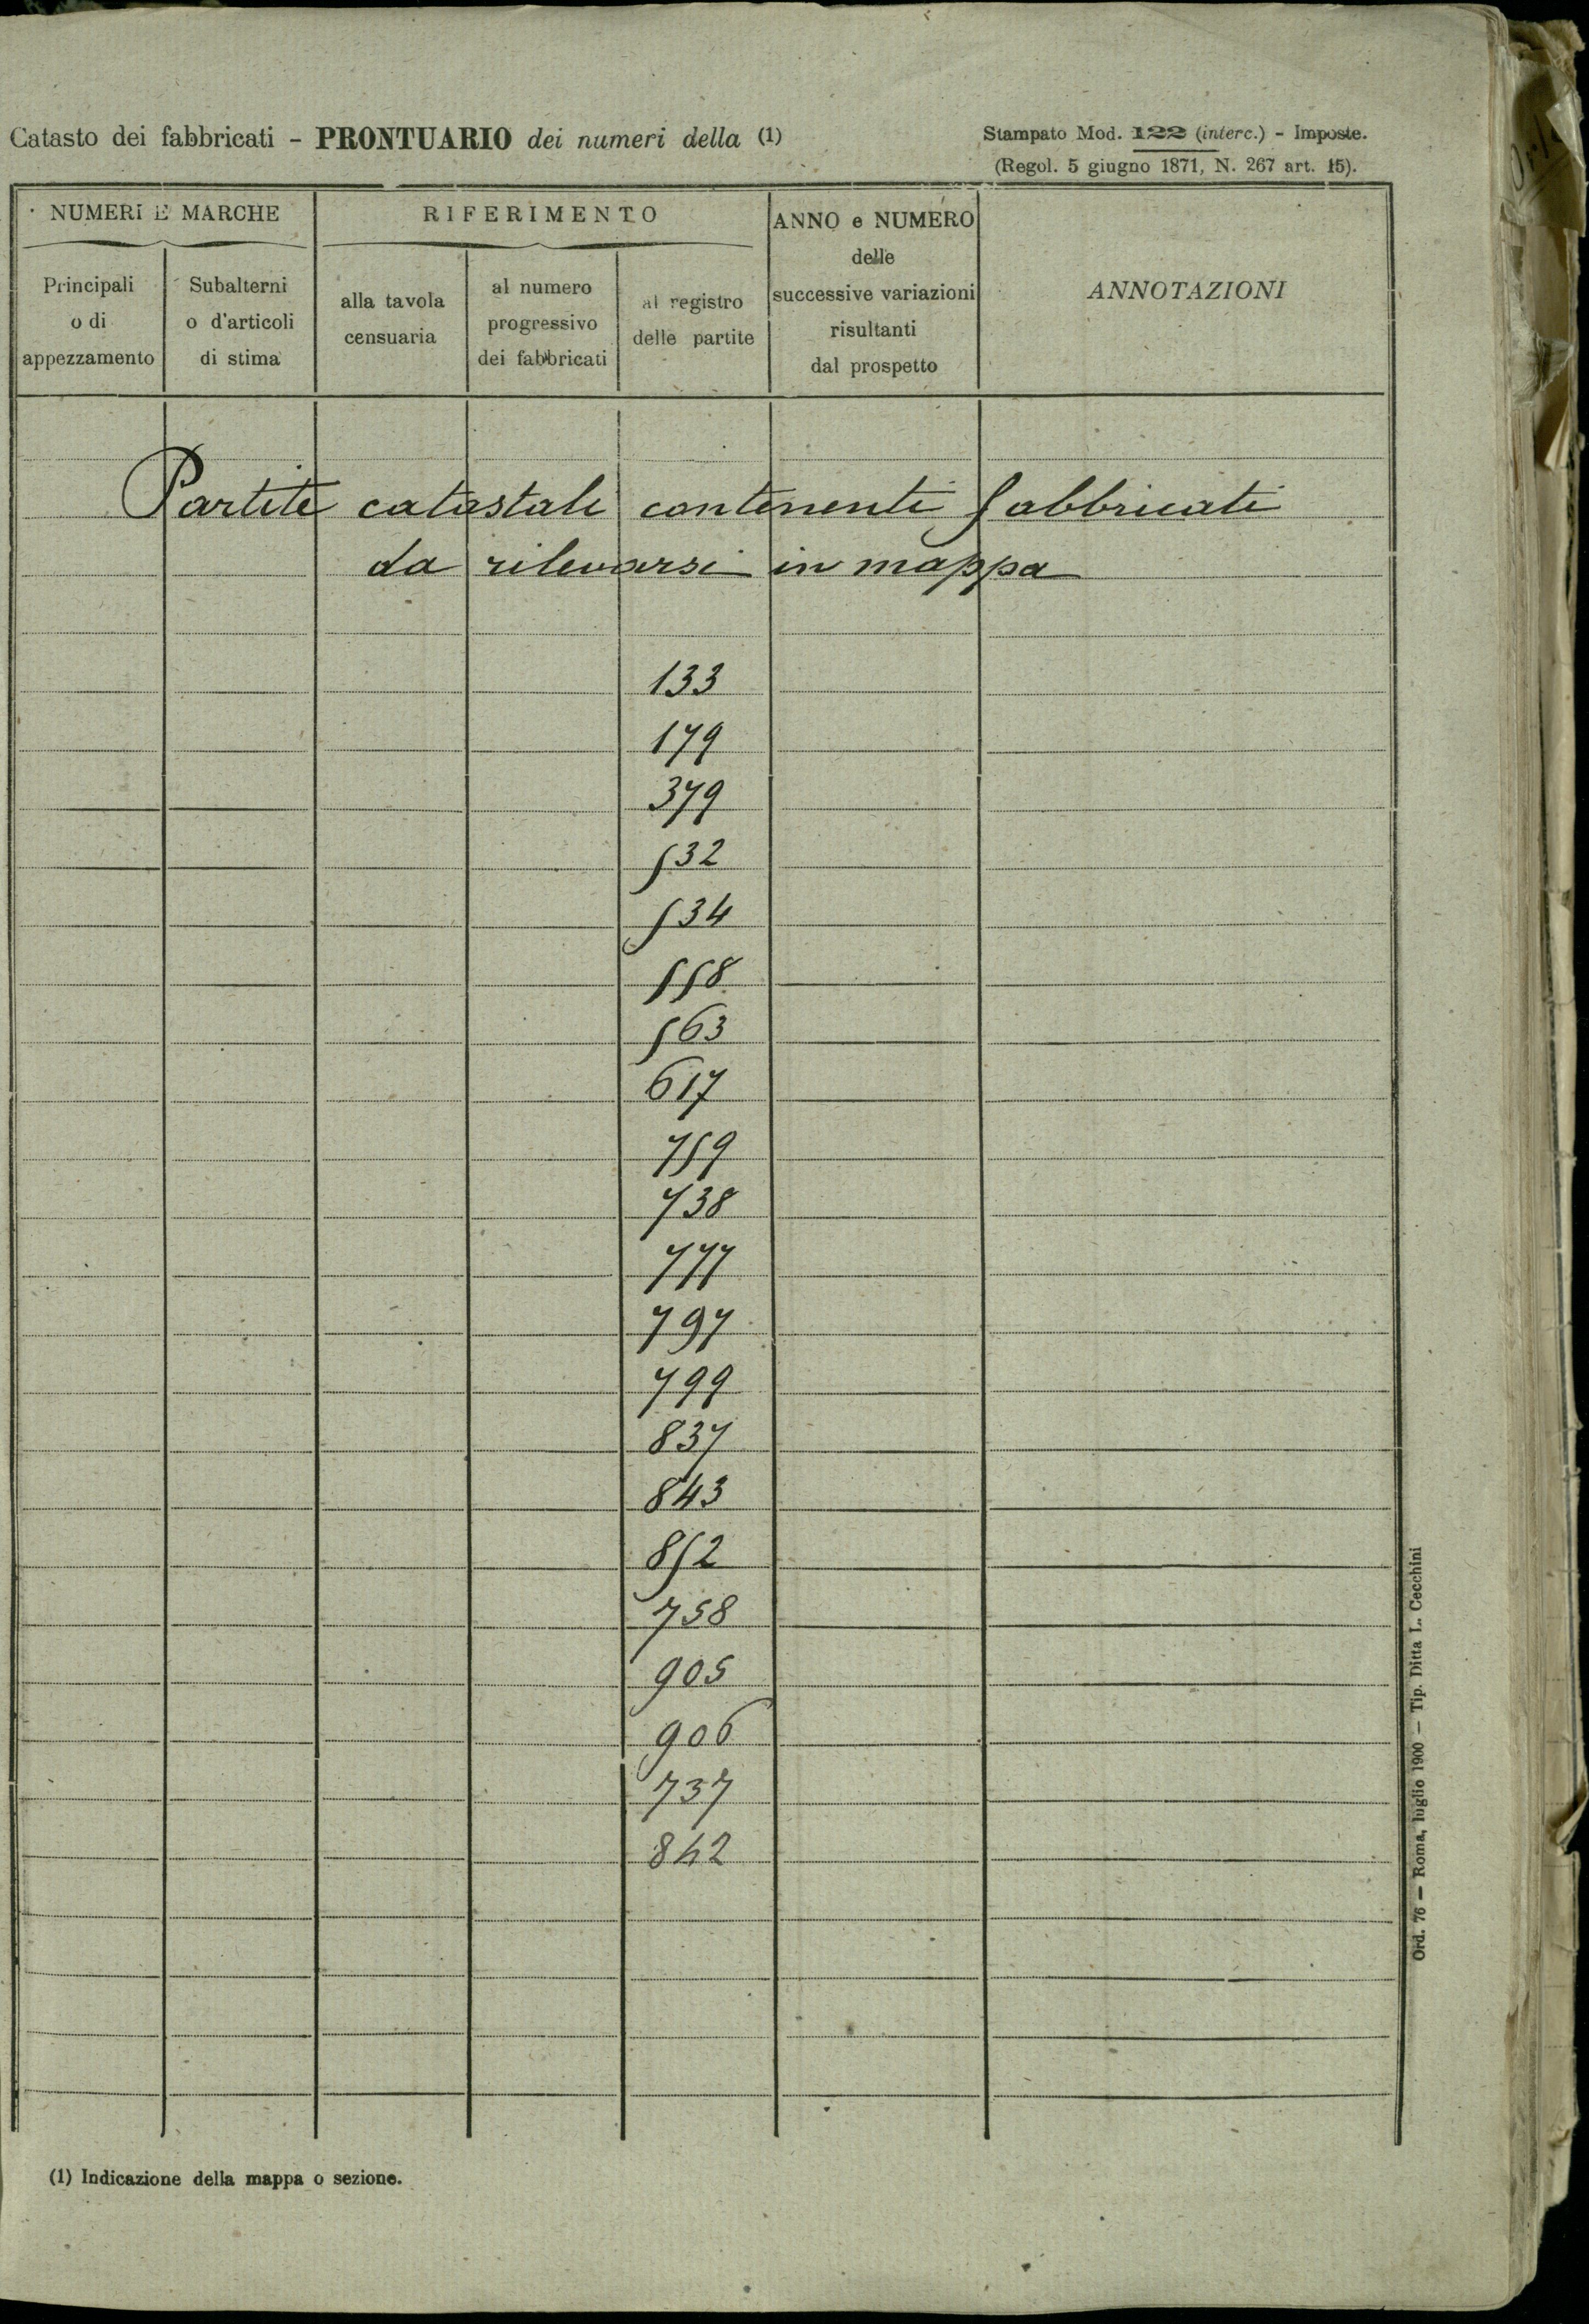 Catasto dei fabbricati - PRONTUARIO dei numeri della (1)
Stampato Mod. 122 (interc.) - Imposte.
(Regol. 5 giugno 1871, N. 267 art. 15).
NUMERI E MARCHE
RIFERIMENTO
ANNO e NUMERO
delle
successive variazioni
risultanti
dal prospetto
ANNOTAZIONI
Principali
o di
appezzamento
Subalterni
o d'articoli
di stima
alla tavola
censuaria
al numero
progressivo
dei fabbricati
al registro
delle partite
Partite catastali contenenti fabbricati
da rilevarsi in mappa
133
179
379
532
534
558
563
617
759
738
777
797
799
837
843
852
758
905
906
737
842
(1) Indicazione della mappa o sezione.
Ord. 76 — Roma, luglio 1900 — Tip. Ditta L. Cecchini